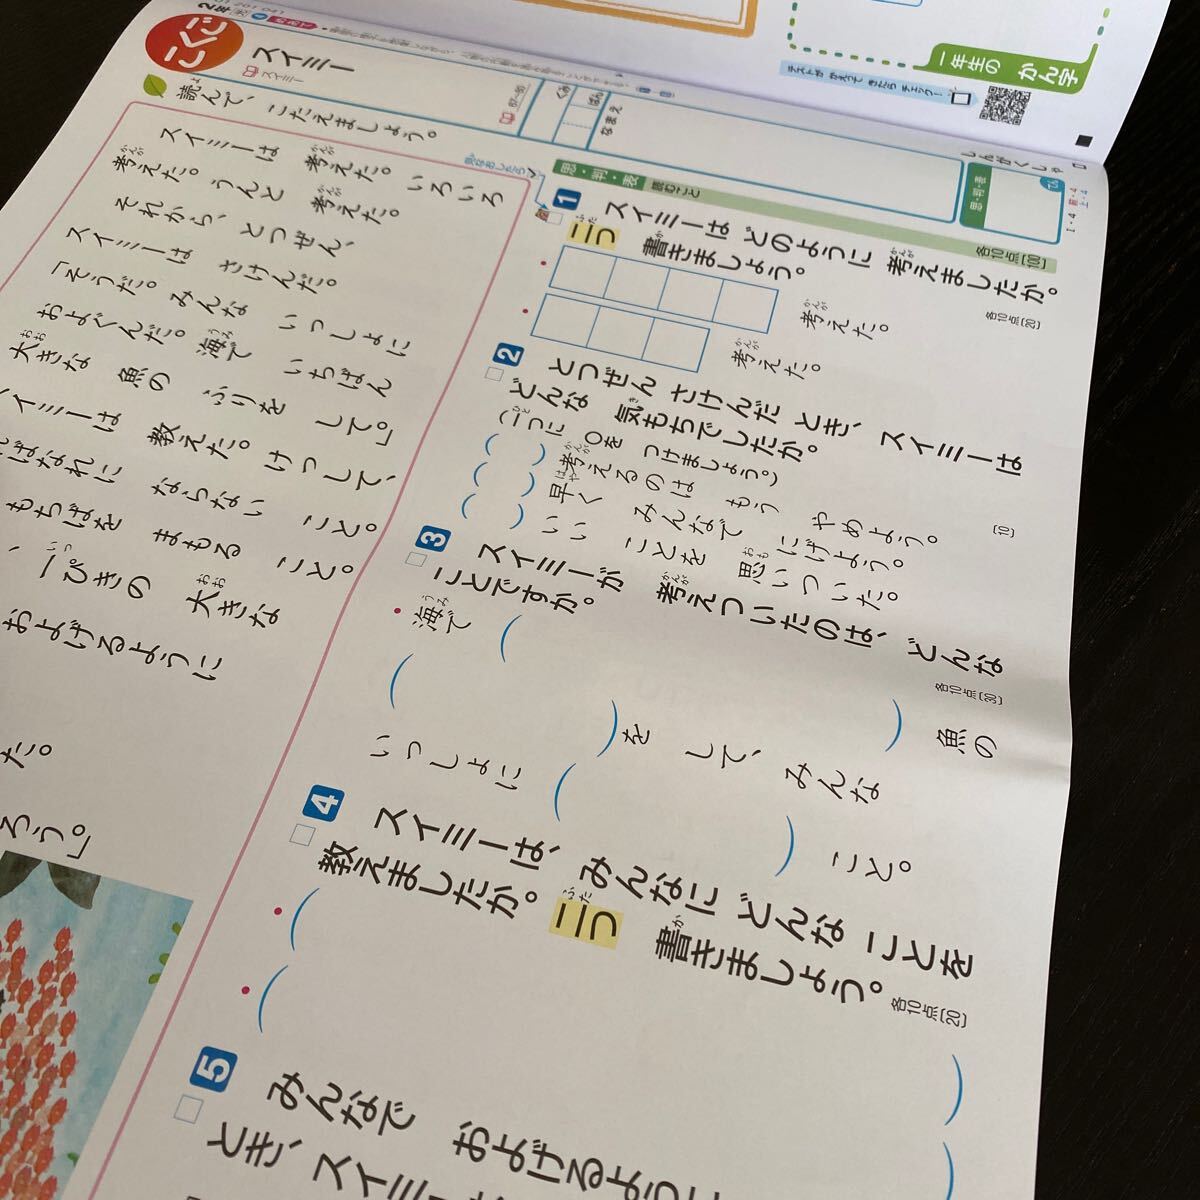 一年生の かん字
テストが かえって きたら チェック!
こくご
2年
スイミー
スイミー
くみ
ばん
なまえ
読んで、こたえましょう。
スイミーは 考えた。いろいろ
考えた。うんと 考えた。
それから、とつぜん、
スイミーは さけんだ。
「そうだ。みんな いっしょに
およぐんだ。海で いちばん
大きな 魚の ふりを して。」
イミーは 教えた。けっして、
ばなれに ならない こと。
もちばを まもる こと。
、一ぴきの 大きな
およげるように
た。
ろう。」
思・判・表
読むこと
各10点〔100〕
1 スイミーは どのように 考えましたか。
二つ 書きましょう。
各10点〔20〕
考えた。
考えた。
2 とつぜん さけんだ とき、スイミーは
どんな 気もちでしたか。
〔10〕
(一つに ○を つけましょう。)
考えるのは もう やめよう。
早く みんなで にげよう。
いい ことを 思いついた。
3 スイミーが 考えついたのは、どんな
ことですか。
各10点〔30〕
海で
魚の
を して、みんな
いっしょに
こと。
4 スイミーは、みんなに どんな ことを
教えましたか。二つ 書きましょう。
各10点〔20〕
5 みんなで およげるように
とき、スイミーは